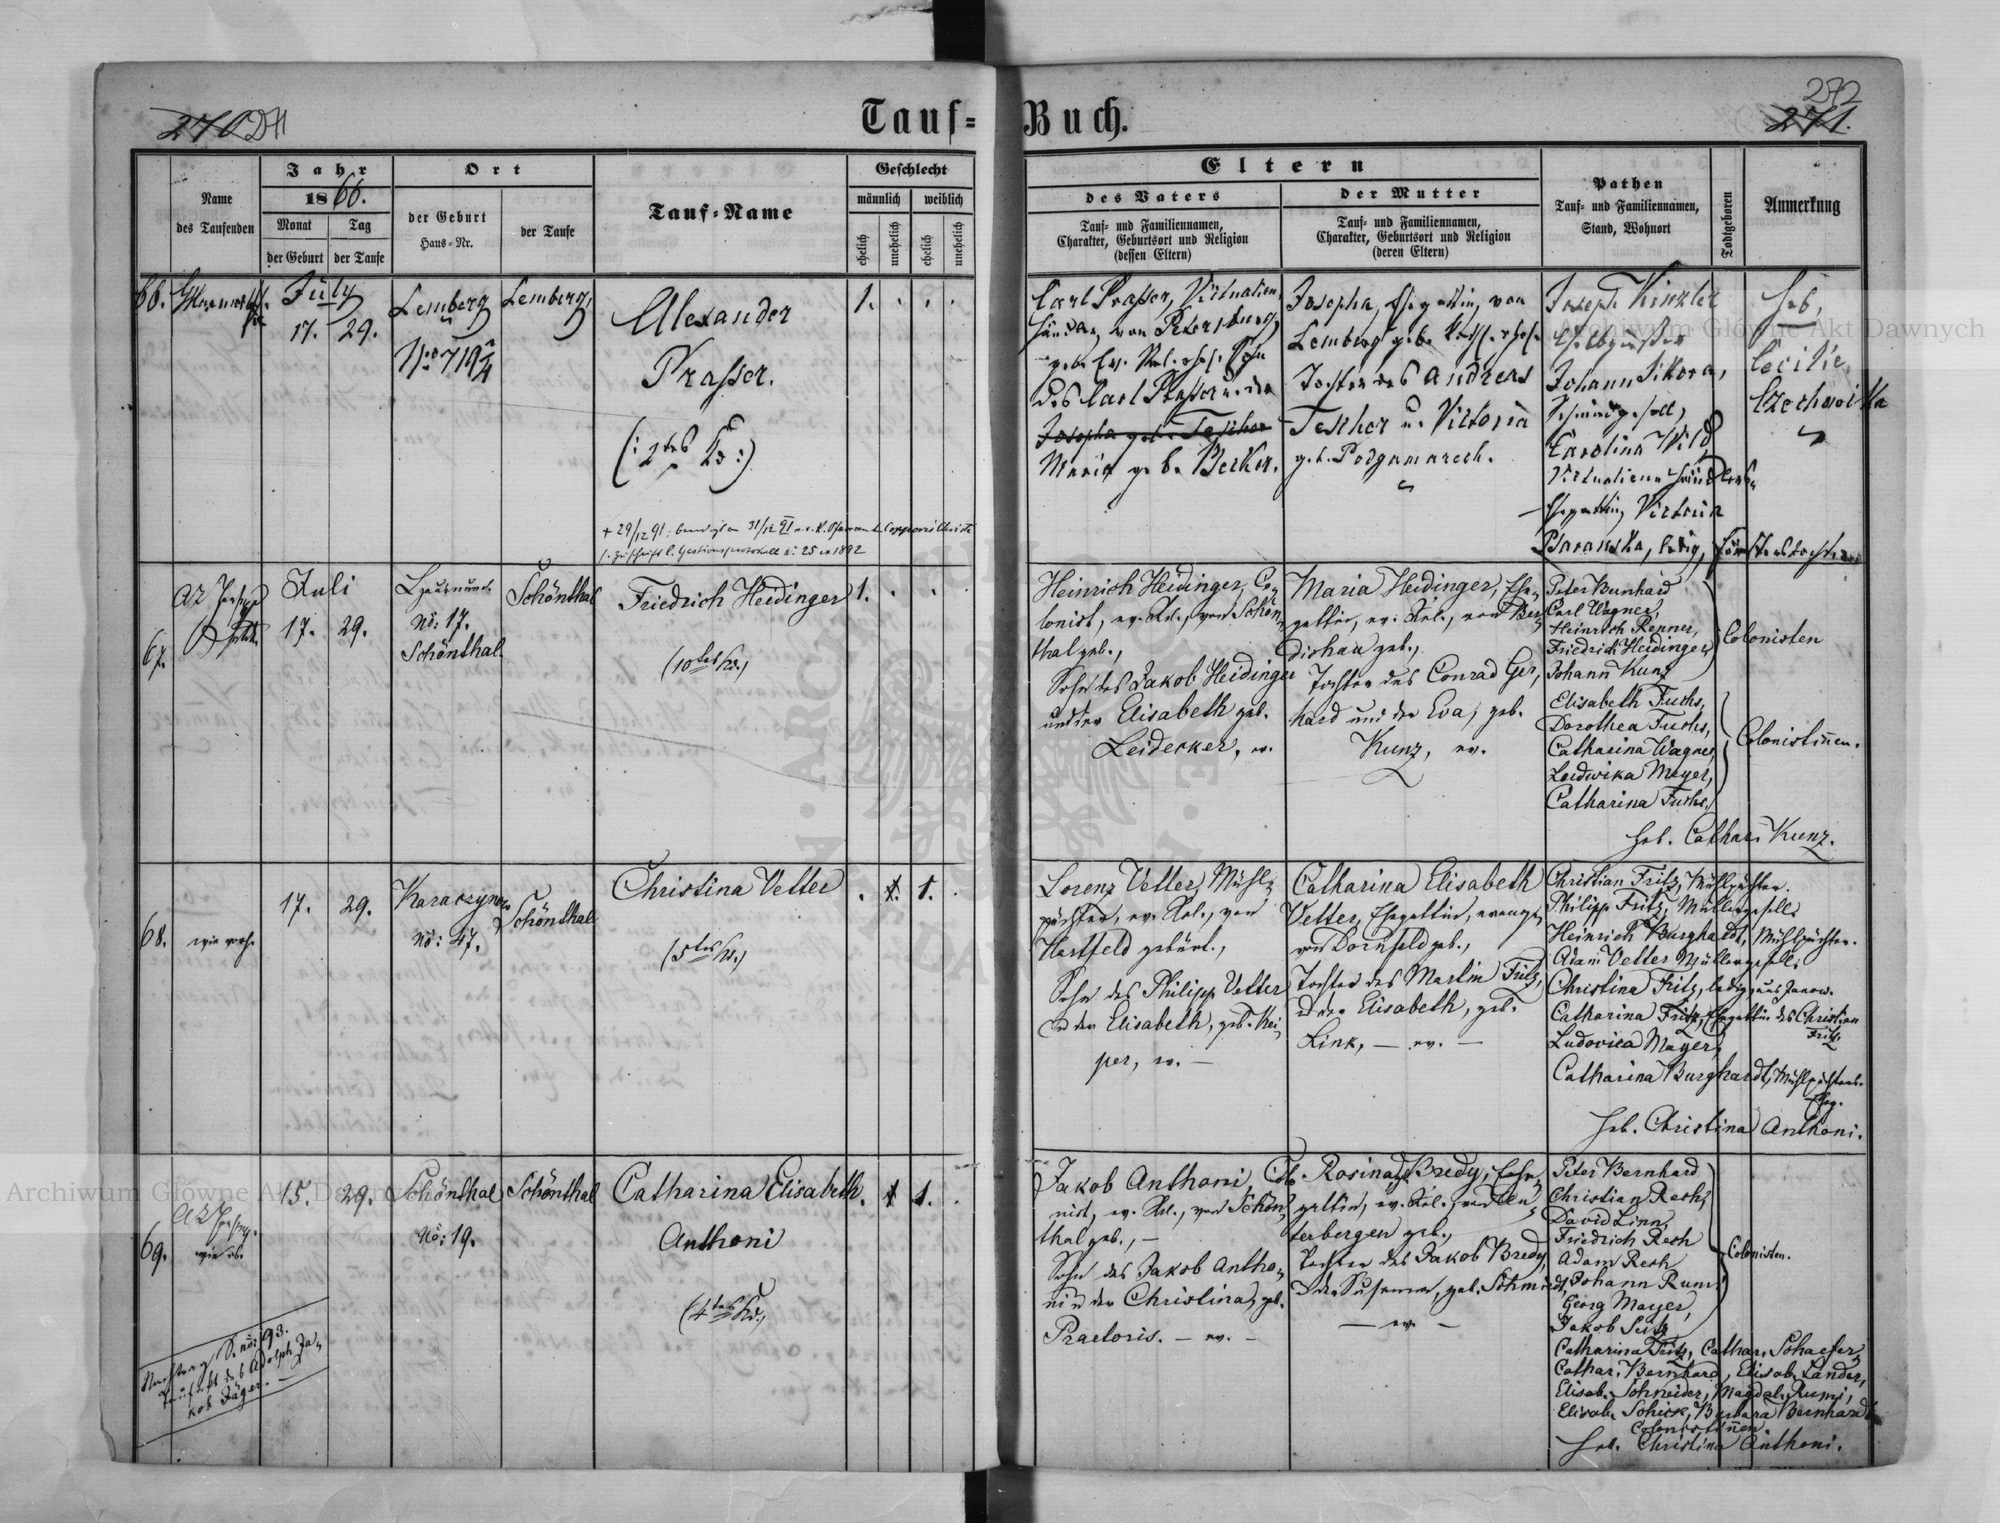 270 271
Tauf-Buch.
272
271.
Name
des Taufenden
Jahr
1866.
Monat
Tag
der Geburt
der Taufe
Ort
der Geburt
Haus-Nr.
der Taufe
Tauf-Name
Geschlecht
männlich
weiblich
ehelich
unehelich
ehelich
unehelich
Eltern
des Vaters
Tauf- und Familiennamen,
Charakter, Geburtsort und Religion
(dessen Eltern)
der Mutter
Tauf- und Familiennamen,
Charakter, Geburtsort und Religion
(deren Eltern)
Pathen
Tauf- und Familiennamen,
Stand, Wohnort
Todtgeboren
Anmerkung
66.
July
17. 29.
Lemberg
No 719 2/4
Lemberg
Alexander
Prasser.
(: 2tes Kd :)
1.
Carl Prasser, Victualien,
händler, von Petersburg
des Carl Prasser u. der
Josepha geb. Tescher
Maria geb. Becker.
Josepha, Ehegattin, von
Lemberg geb.
Tochter des Andreas
Tescher u. Victoria
geb. Podgamarech.
Joseph Kinzler
Johann Sikora,
Carolina Wild
Victualienhändlers
Ehegattin, Victoria
Baranska, ledig, Försterstochter
Heb.
Cecilie
Czechowicka
67.
Juli
17. 29.
No: 17.
Schönthal.
Schönthal
Friedrich Heidinger
(10tes Kd.)
1.
Heinrich Heidinger, Co-
lonist, ev. Rel., von Schön-
thal geb.,
Sohn des Jakob Heidinger
und der Elisabeth geb.
Leidecker, ev.
Maria Heidinger, Ehe-
gattin, ev. Rel., von Ber-
dichau geb.,
Tochter des Conrad Ger-
hard und der Eva, geb.
Kunz, ev.
Peter Bernhard
Carl Wagner,
Heinrich Renner,
Friedrich Heidinger,
Johann Kunz
Colonisten
Elisabeth Fuchs,
Dorothea Fuchs,
Catharina Wagner,
Ludwika Meyer,
Catharina Fuchs,
Colonistinen.
Heb. Cathar. Kunz.
68.
wie vorh.
17. 29.
Karaczynow
No: 47.
Schönthal
Christina Vetter
(5tes Kd.)
1.
Lorenz Vetter, Mühl-
pächter, ev. Rel., von
Hartfeld gebürt.,
Sohn des Philipp Vetter
u der Elisabeth, geb. Kei-
per, ev. —
Catharina Elisabeth
Vetter, Ehegattin, evang.,
von Dornfeld geb.,
Tochter des Martin Fritz,
u der Elisabeth, geb.
Link, — ev. —
Christian Fritz, Mühlpächter.
Philipp Fritz, Müllergesell:
Heinrich Burghardt, Mühlpächter.
Adam Vetter Müllergesell:
Christina Fritz, ledig, aus Janow.
Catharina Fritz, Ehegattin des Christian
Fritz,
Ludovica Mayer,
Catharina Burghardt, Mühlpächters
Eheg.
Heb. Christina Anthoni.
69.
wie ob.
15. 29.
Schönthal
No: 19.
Schönthal
Catharina Elisabeth
Anthoni
(4tes Kd.)
1.
Jakob Anthoni, Colo-
nist, ev. Rel., von Schön-
thal geb., —
Sohn des Jakob Antho-
ni u der Christina, geb.
Praetoris. — ev. —
Rosina geb. Bredy, Ehe-
gattin, ev. Rel., von Un-
terbergen geb.,
Tochter des Jakob Bredy
u der Susanna, geb. Schmidt,
— ev. —
Peter Bernhard
Christian Resh,
David Linn,
Friedrich Resh
Adam Resh
Johann Rumi
Georg Mayer,
Jakob Seitz
Colonisten.
Catharina Seitz, Cathar. Schaefer,
Cathar. Bernhard, Elisab. Lander,
Elisab. Schneider, Magdal. Rumi,
Elisab. Schick, Barbara Bernhardt
Colonistinen.
Heb. Christina Anthoni.
Nachtrag S. no: 93.
Taufakt des Adolph Ja-
kob Jäger. —
Archiwum Główne Akt Dawnych
Archiwum Główne Akt Dawnych